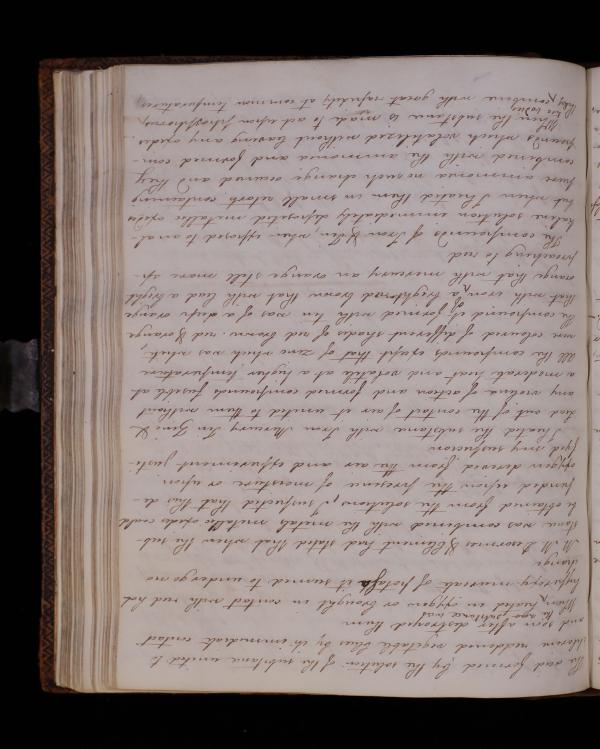 The acid formed by the solution of the substance united to
chlorine reddened vegetable blues by its immediate contact
and soon after destroyed them
When ^the new substance was heated in oxygene or brought in contact with red hot
hyperoxymuriate of potassa it seemed to undergo no
change.
M.M. Desormes & Clement had stated that when the sub-
stance was combined with the metals metallic oxide could
be obtained from the solutions, I suspected that this de-
pended upon the presence of moisture or upon
oxygen derived from the air and experiment justi-
fyed my suspicion
I heated the substance with Iron Mercury Tin Zinc &
Lead out of the contact of air it united to them without
any violence of action and formed compounds fusible at
a moderate heat and volatile at a higher temperature
All the compounds except that of zinc which was white,
were coloured of different shades of red brown. red & orange
The compound it formed with tin was of a deep orange
that with iron ^of a bright red brown that with lead a bright
orange that with mercury an orange still more ap-
proaching to red
The compounds of Iron &c when exposed to al-
kaline solution immediately deposited metallic oxides
but when I heated them in small retorts containing
pure ammonia no such change occured and they
combined with the ammonia and formed com-
pounds which volatilized without leaving any oxides
When the substance is made to act upon phosphorus,
they ^two bodies combine with great rapidity at common temperatures